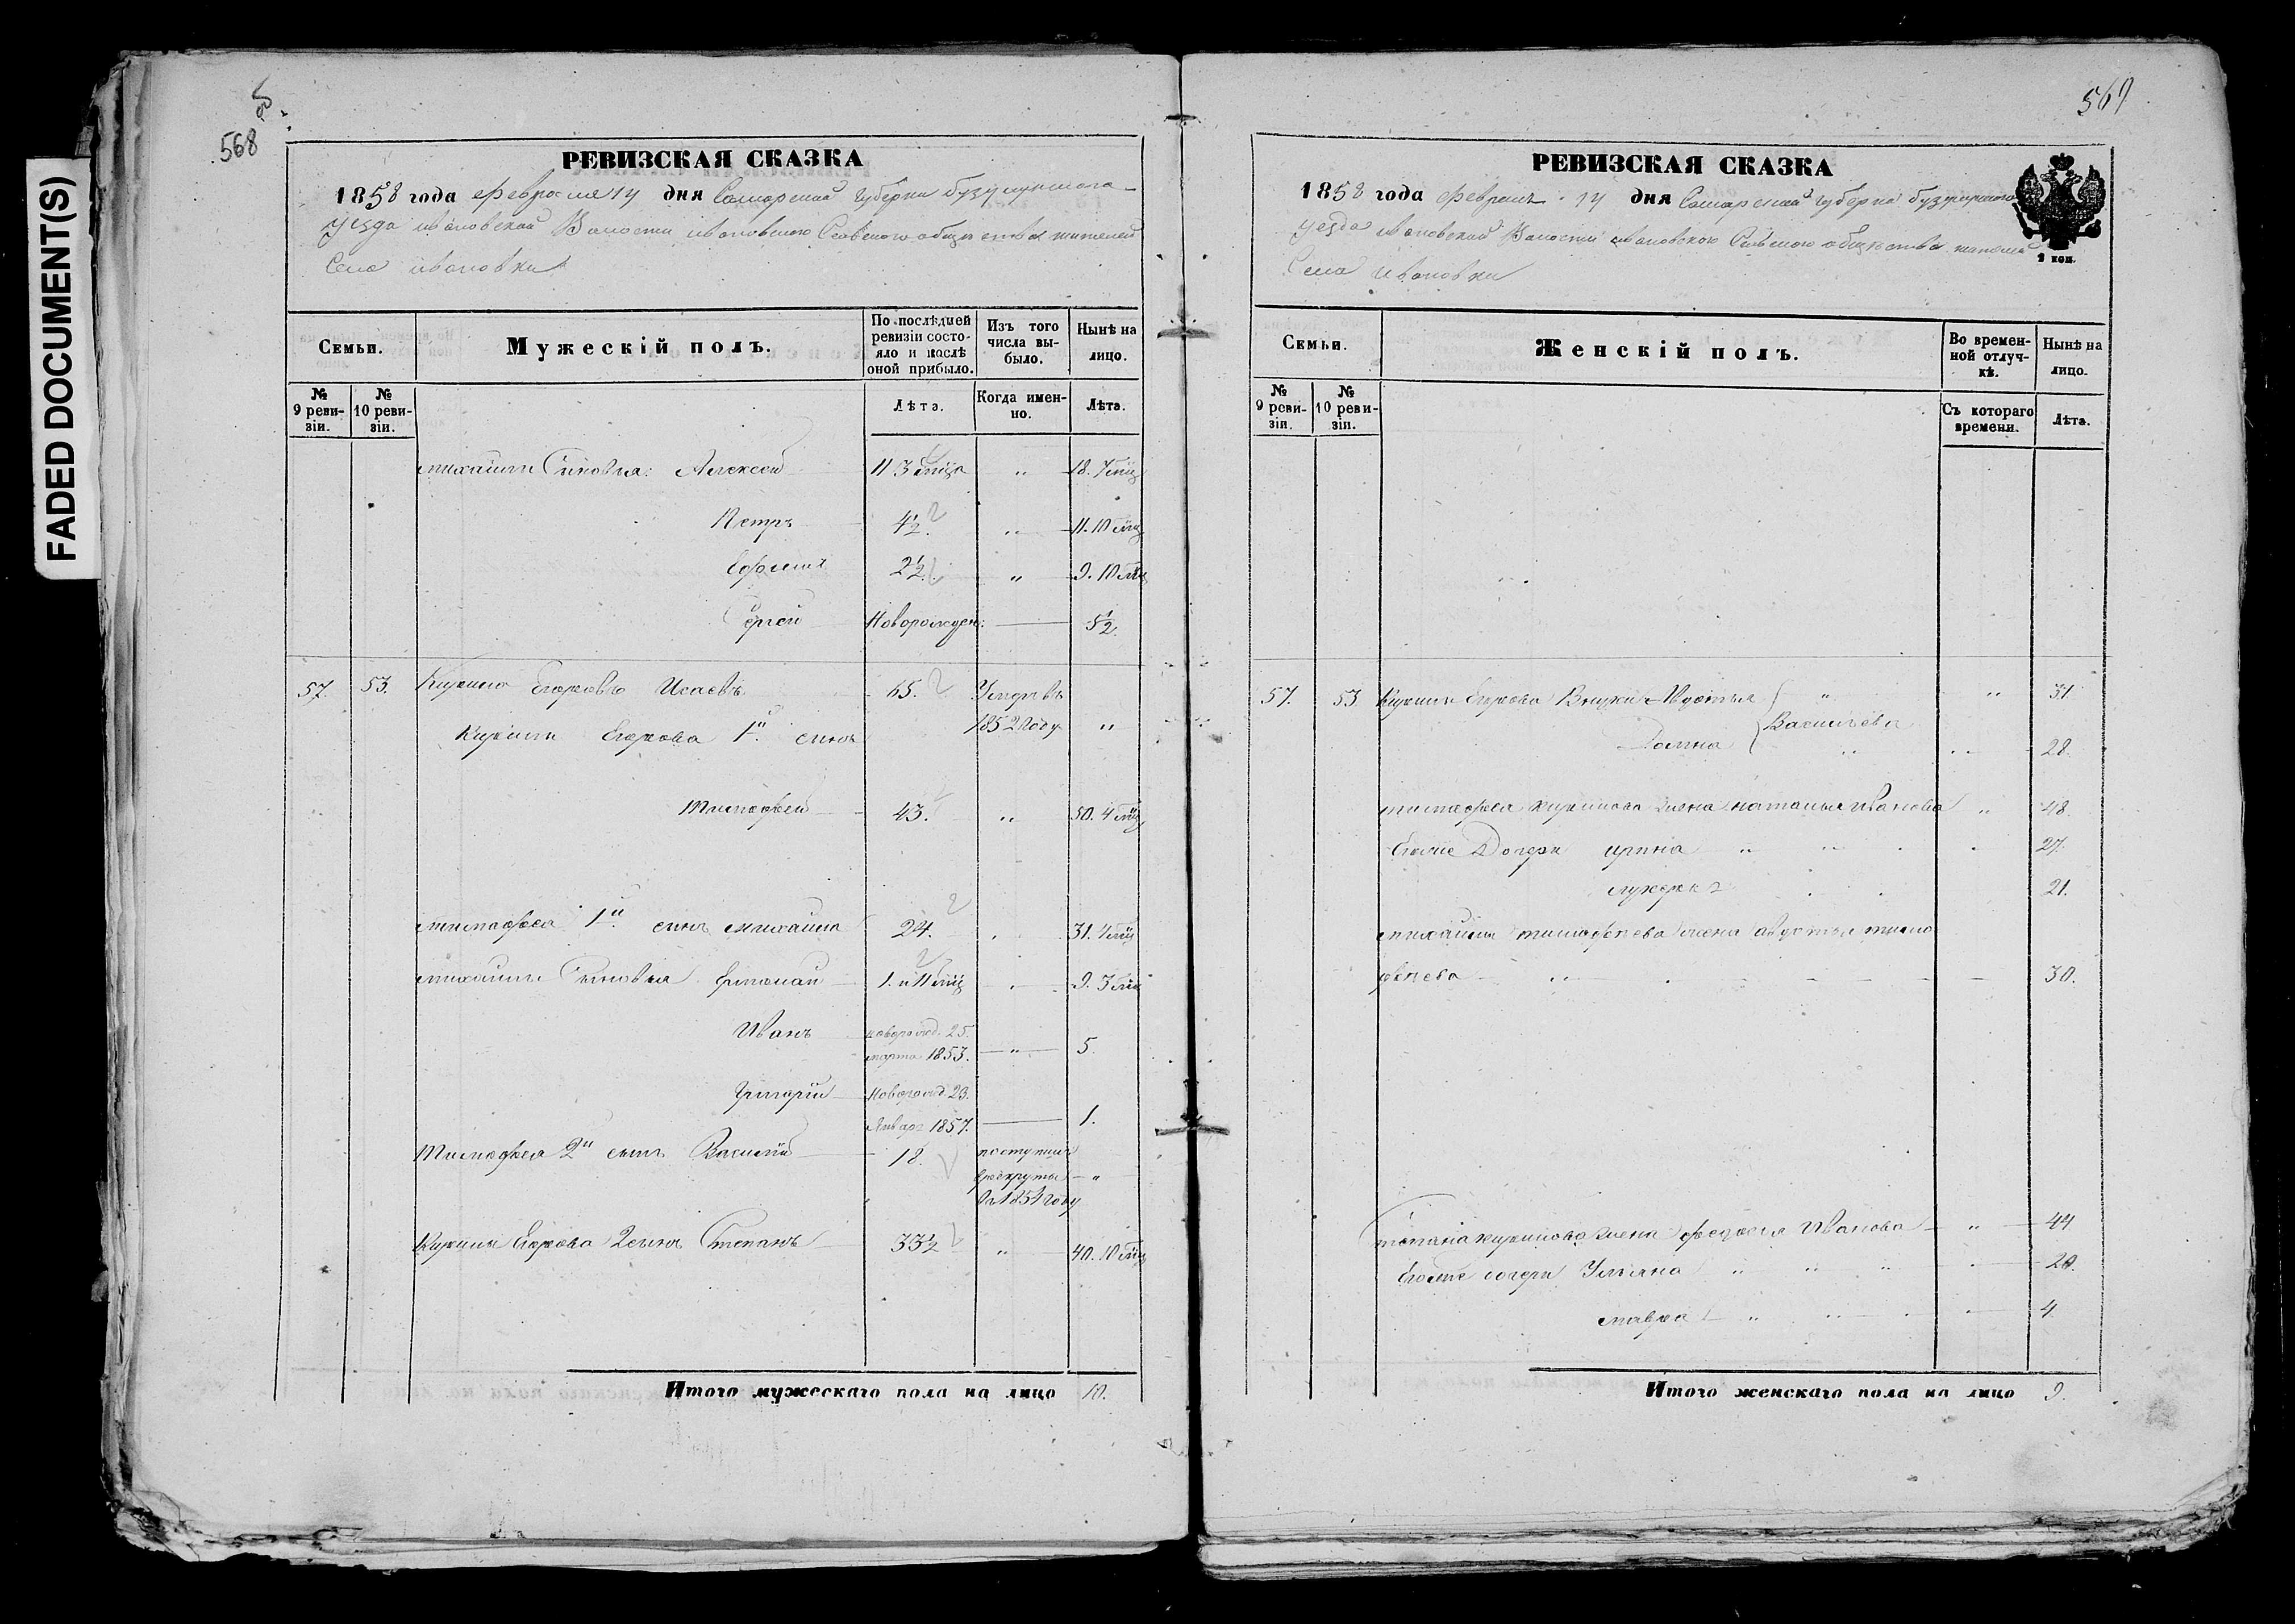 FADED DOCUMENT(S)
568
РЕВИЗСКАЯ СКАЗКА
1858 года Февраля 14 дня Самарской Губерни бузулукскаго
Уезда ивановской Волости ивановскаго Сельскаго общества жителей
Села ивановки
Семьи.
Мужескій полъ.
По послѣдней ревизіи состояло и послѣ оной прибыло.
Изъ того числа выбыло.
Нынѣ на лицо.
№ 9 ревизіи.
№ 10 ревизіи.
Лѣта.
Когда именно.
Лѣта.
михайлы Сыновья: Алексей 11 3 мща „ 18. 7 мщ
Петръ 4½ „ 11. 10 мщ
Ефимъ 2½ „ 9. 10 мщ
Сергей Новорожден: — 5½
57. 53. Кирила Егоровъ Исаевъ 65. Умеръ въ
Кирилы Егорова 1й сынъ 1852 году „
Тимофей 43. „ 50. 4 мщ
тимофея 1й сынъ михайла 24. 31. 4 мщ
михайлы Сыновья 1. и 11 мщ 9. 3 мщ
Иванъ новорожд. 25.
марта 1853. „ 5.
Григорий Новорожд. 23.
Январ 1857. — 1.
Тимофея 2й сынъ Василий 18. поступилъ
врекруты „
в 1854 году
Кирилы Егорова 2 сынъ Степанъ 33½ „ 40. 10 мщ
Итого мужескаго пола на лицо 10.
569
РЕВИЗСКАЯ СКАЗКА
1858 года Февраля 14 дня Самарской Губерни бузулукскаго
Уезда ивановской Волости ивановскаго Сельскаго общества жителей
Села ивановки
2 коп.
Семьи.
Женскій полъ.
Во временной отлучкѣ.
Нынѣ на лицо.
№ 9 ревизіи.
№ 10 ревизіи.
Съ котораго времени.
Лѣта.
57. 53. Кирилы Егорова Внучки Авдотья „ „ 31.
Васильевы
Домна „ „ 28.
тимофея кирилова жена наталья Иванова „ 48.
Егоже Дочери ирина „ „ 27.
лукерья 21.
михайлы тимофеева жена авдотья тимо
феева „ 30.
Степана кирилова жена федосья Иванова „ 44
Егоже дочери Ульяна „ „ „ 20.
мавра „ „ 4.
Итого женскаго пола на лицо 9.